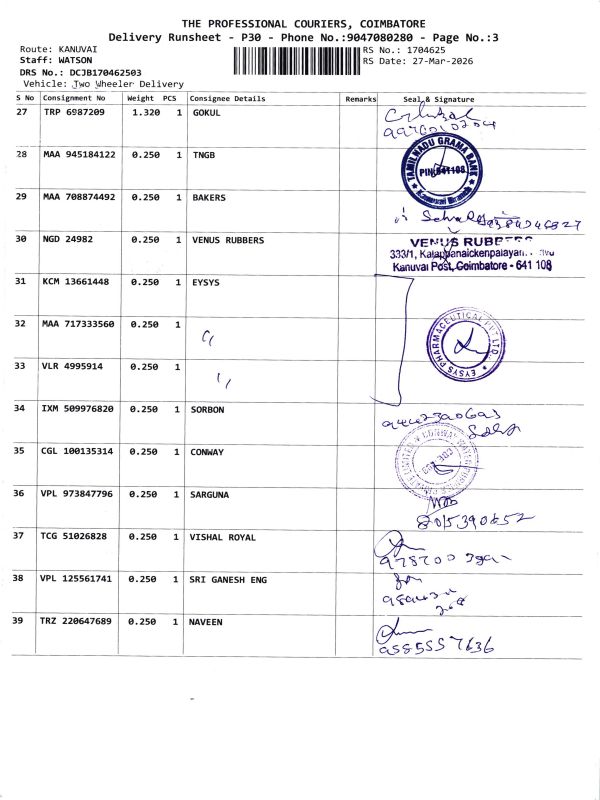 THE PROFESSIONAL COURIERS, COIMBATORE
Delivery Runsheet - P30 - Phone No.:9047080280 - Page No.:3
Route: KANUVAI
RS No.: 1704625
Staff: WATSON
RS Date: 27-Mar-2026
DRS No.: DCJB170462503
Vehicle: Two Wheeler Delivery
S No Consignment No Weight PCS Consignee Details Remarks Seal & Signature
27 TRP 6987209 1.320 1 GOKUL
28 MAA 945184122 0.250 1 TNGB
TAMILNADU GRAMA BANK
PIN:641108
Kanuvai Branch
29 MAA 708874492 0.250 1 BAKERS
30 NGD 24982 0.250 1 VENUS RUBBERS
VENUS RUBBERS
333/1, Kalappanaickenpalayam
Kanuvai Post, Coimbatore - 641 108
31 KCM 13661448 0.250 1 EYSYS
32 MAA 717333560 0.250 1 "
EYSYS PHARMACEUTICAL PVT LTD.
33 VLR 4995914 0.250 1 "
34 IXM 509976820 0.250 1 SORBON
35 CGL 100135314 0.250 1 CONWAY
36 VPL 973847796 0.250 1 SARGUNA
8015390652
37 TCG 51026828 0.250 1 VISHAL ROYAL
38 VPL 125561741 0.250 1 SRI GANESH ENG
39 TRZ 220647689 0.250 1 NAVEEN
9585557636